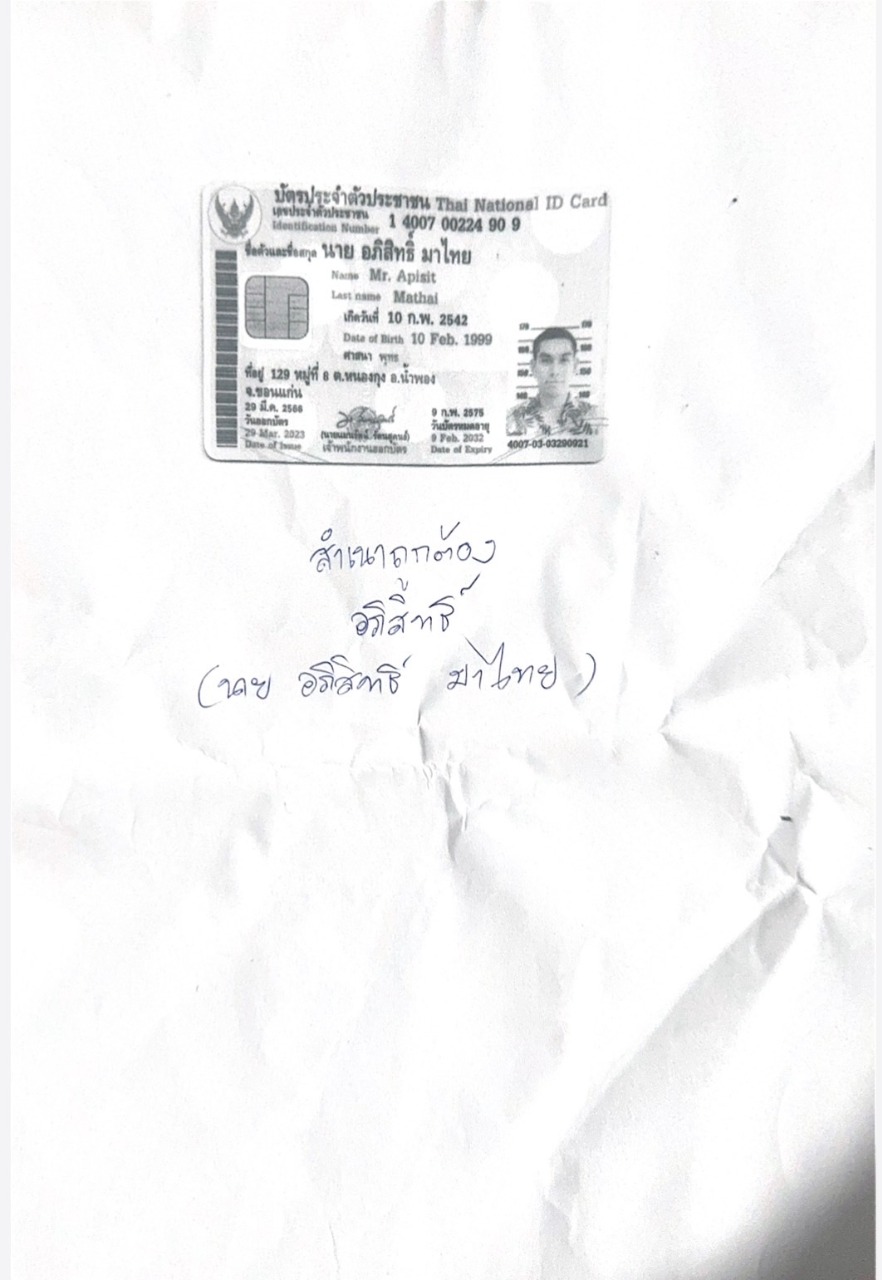 บัตรประจำตัวประชาชน Thai National ID Card
เลขประจำตัวประชาชน
Identification Number 1 4007 00224 90 9
ชื่อตัวและชื่อสกุล นาย อภิสิทธิ์ มาไทย
Name Mr. Apisit
Last name Mathai
เกิดวันที่ 10 ก.พ. 2542
Date of Birth 10 Feb. 1999
ศาสนา พุทธ
ที่อยู่ 129 หมู่ที่ 8 ต.หนองกุง อ.น้ำพอง
จ.ขอนแก่น
29 มี.ค. 2566
วันออกบัตร
29 Mar. 2023
Date of Issue
เจ้าพนักงานออกบัตร
9 ก.พ. 2575
วันบัตรหมดอายุ
9 Feb. 2032
Date of Expiry
4007-03-03290921
สำเนาถูกต้อง
อภิสิทธิ์
(นาย อภิสิทธิ์ มาไทย)